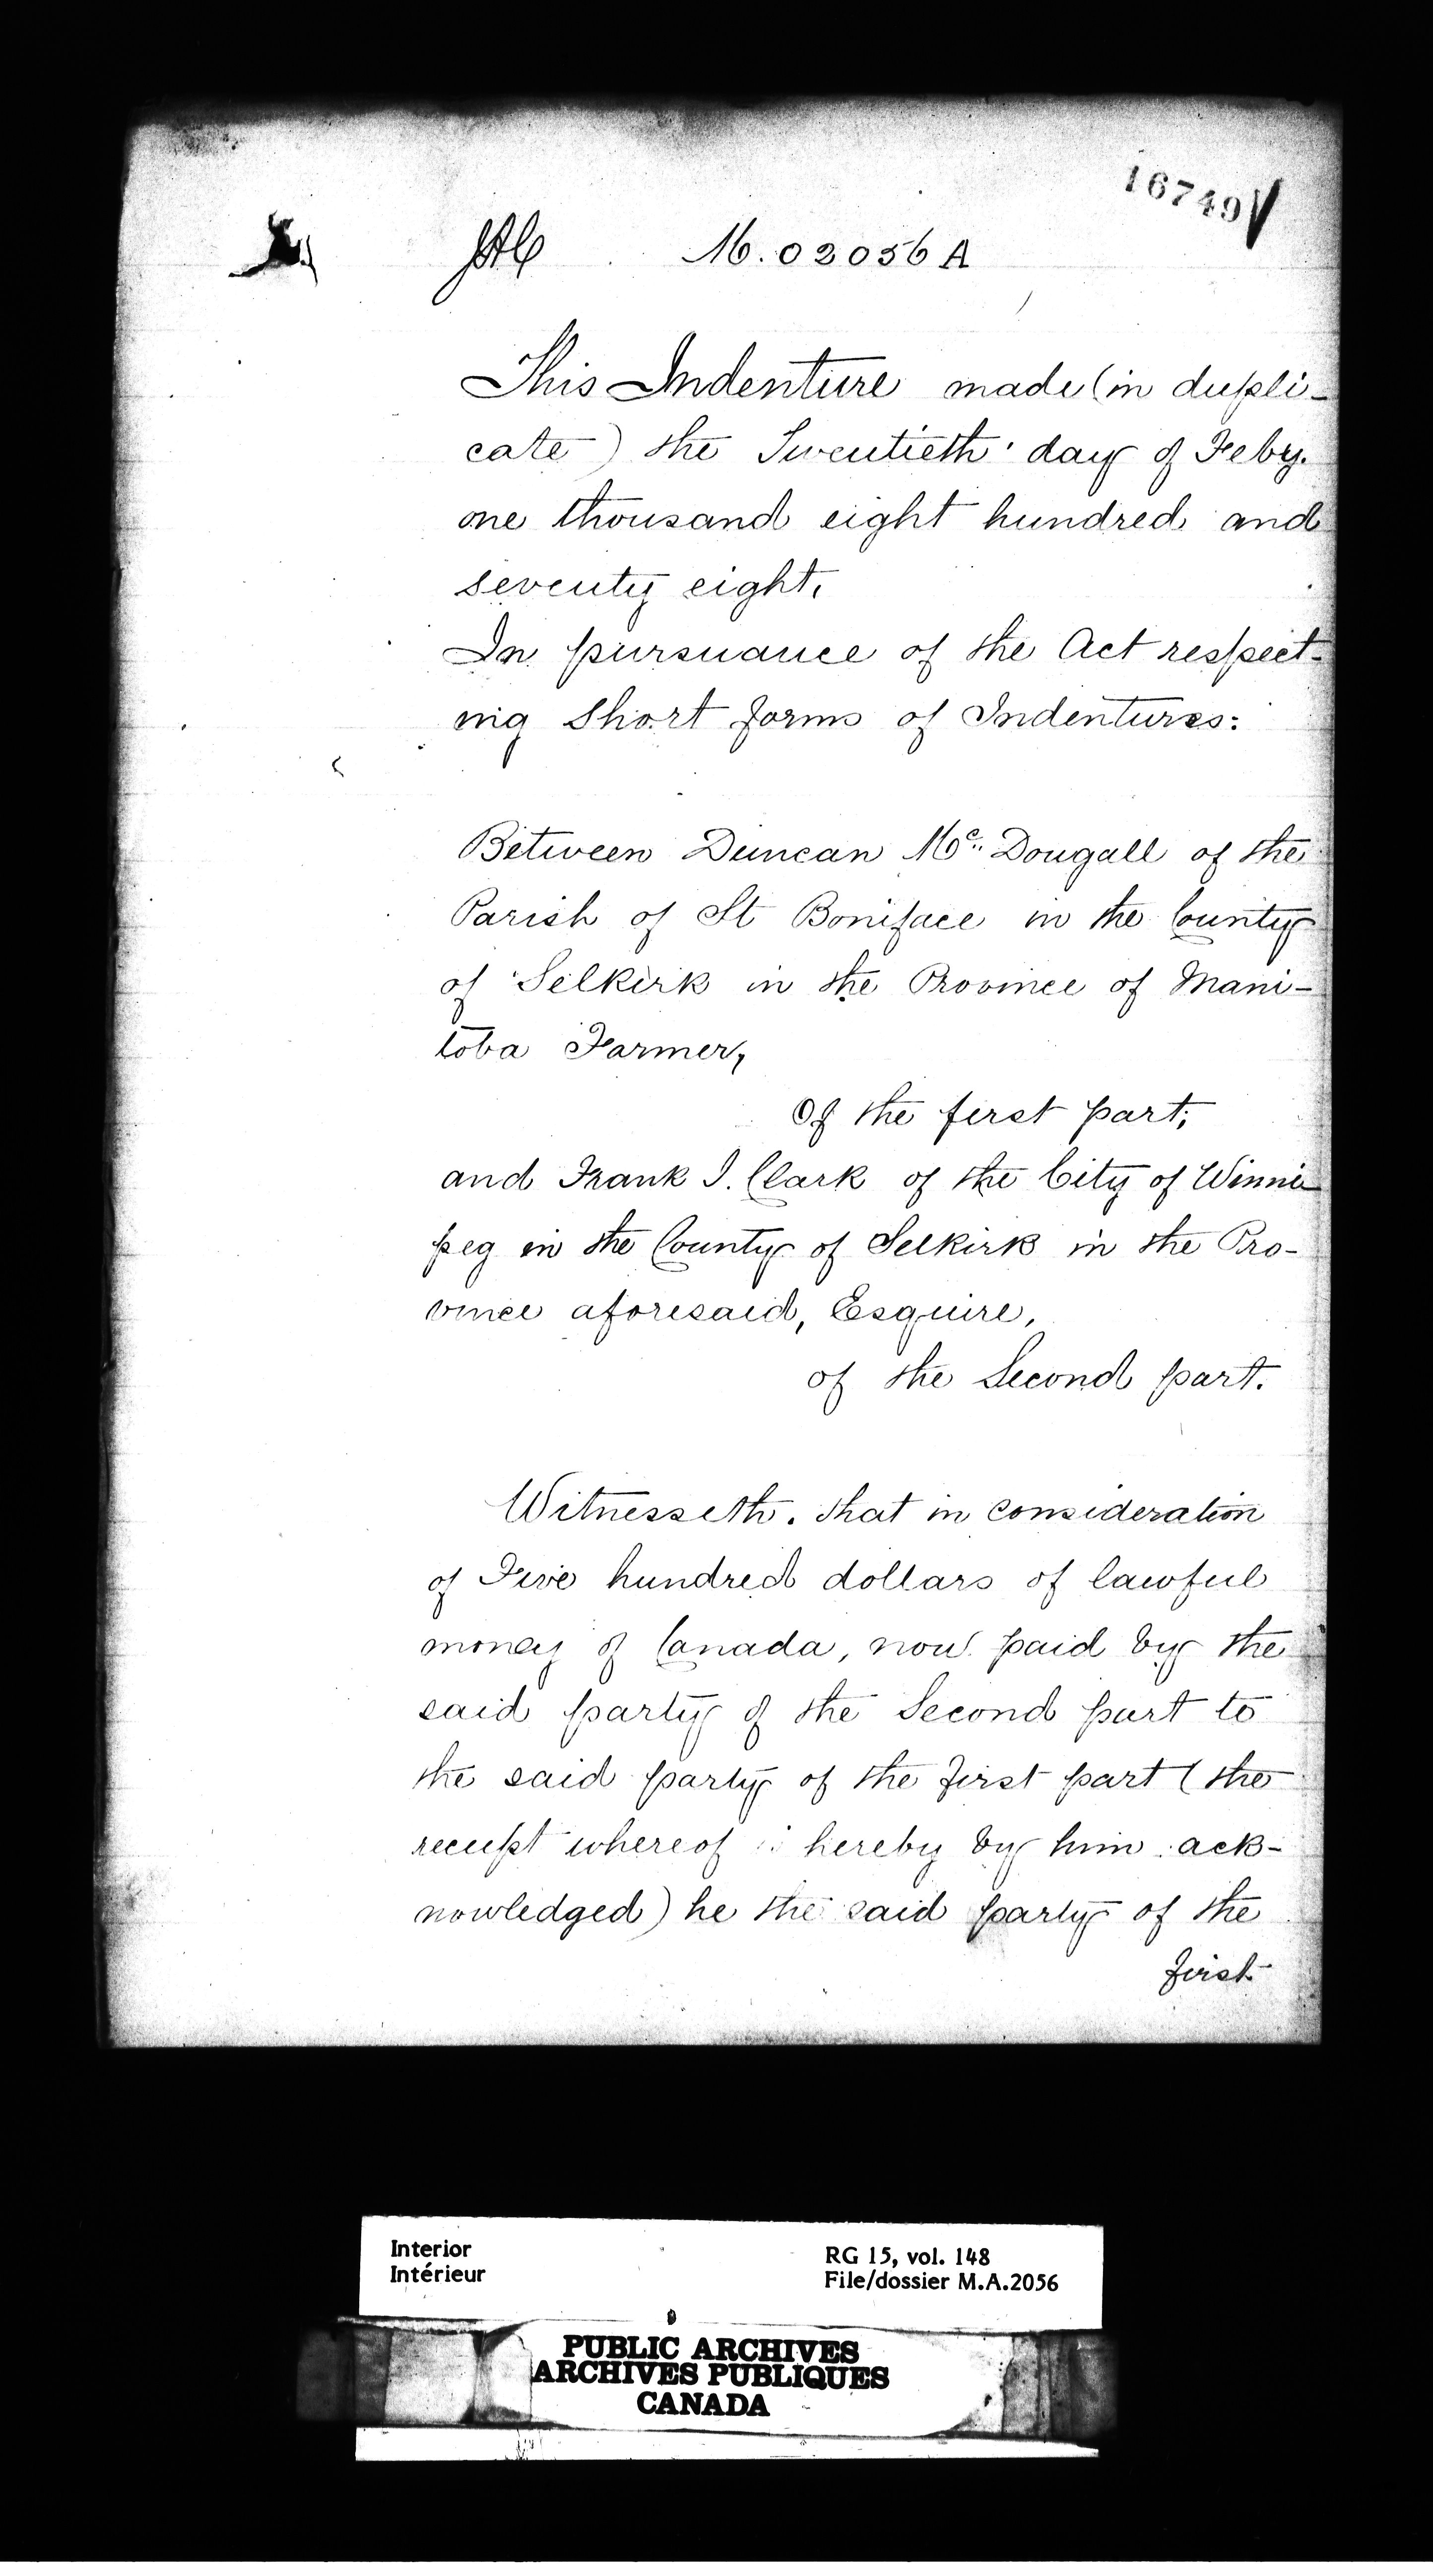 16749
M. 02056 A
This Indenture made (in dupli-
cate) the Twentieth day of Feby.
one thousand eight hundred and
seventy eight.
In pursuance of the Act respect-
ing Short forms of Indentures:
Between Duncan Mc Dougall of the
Parish of St Boniface in the County
of Selkirk in the Province of Mani-
toba Farmer,
Of the first part;
and Frank I. Clark of the City of Winni-
peg in the County of Selkirk in the Pro-
vince aforesaid, Esquire,
of the Second part.
Witnesseth. that in consideration
of Five hundred dollars of lawful
money of Canada, now paid by the
said party of the Second part to
the said party of the first part (the
receipt whereof is hereby by him ack-
nowledged) he the said party of the
first
Interior
Intérieur
RG 15, vol. 148
File/dossier M.A.2056
PUBLIC ARCHIVES
ARCHIVES PUBLIQUES
CANADA